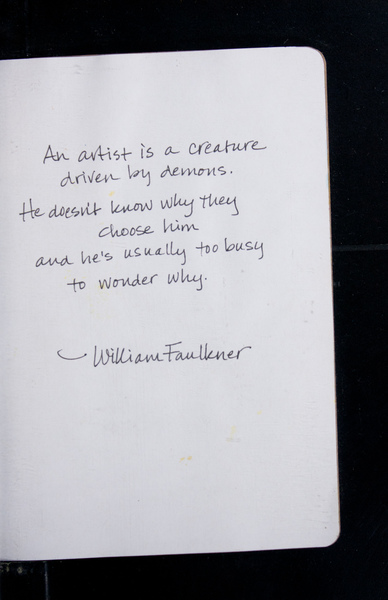 An artist is a creature
driven by demons.
He doesn't know why they
choose him
and he's usually too busy
to wonder why.
William Faulkner